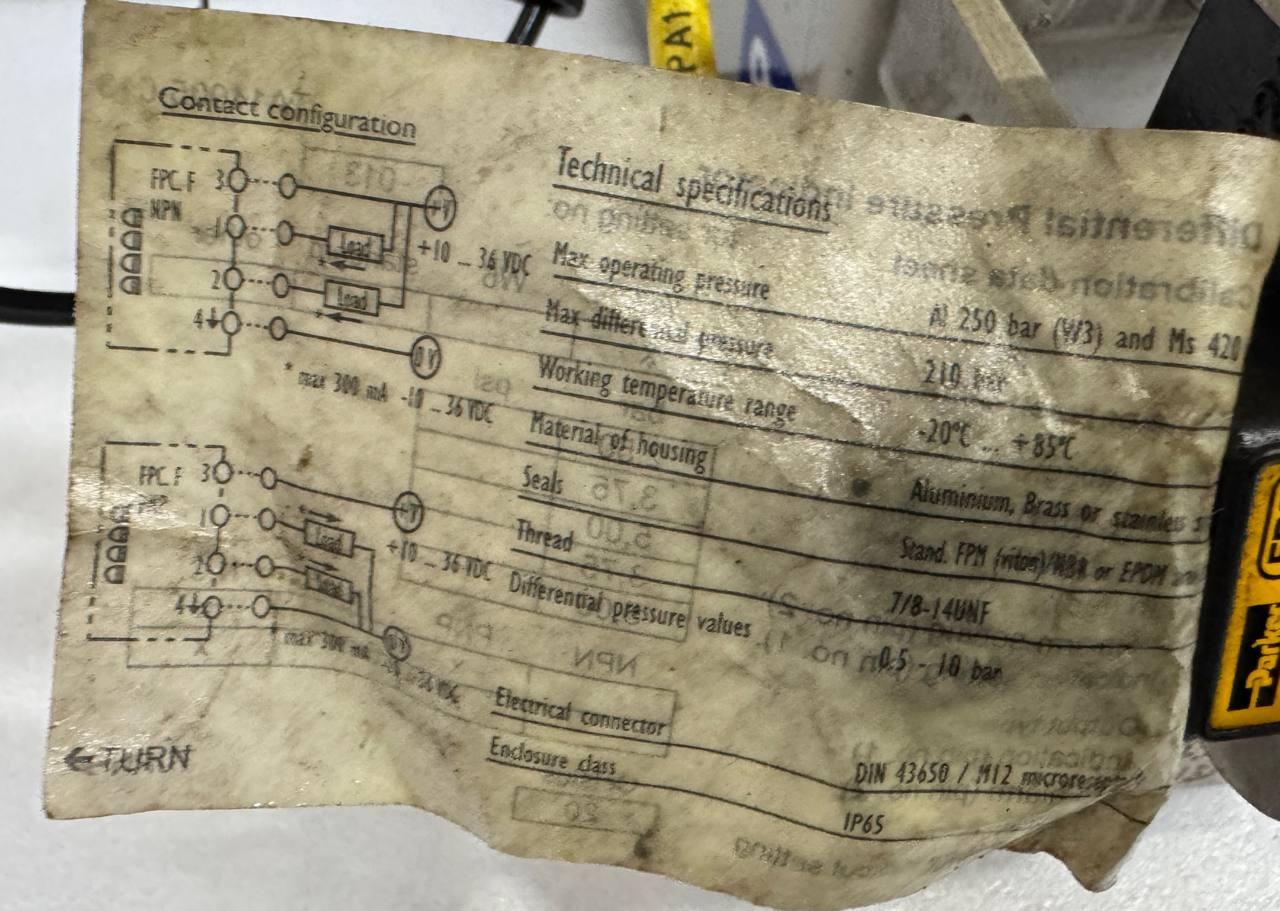 PA1
Contact configuration
FPC. F
NPN
3
1
2
4
Load
Load
+V
+10 ... 36 VDC
0 V
* max 300 mA -10 ... 36 VDC
FPC. F
3
1
2
4
Load
Load
+V
+10 ... 36 VDC
0 V
max 300 mA
VDC
← TURN
Technical specifications
Max operating pressure
Al 250 bar (W3) and Ms 420
Max differential pressure
210 bar
Working temperature range
-20°C ... +85°C
Material of housing
Aluminium, Brass or stainless s
Seals
Stand. FPM (viton)/NBR or EPDM
Thread
7/8-14UNF
Differential pressure values
0.5 - 10 bar
Electrical connector
DIN 43650 / M12
Enclosure class
IP65
Parker